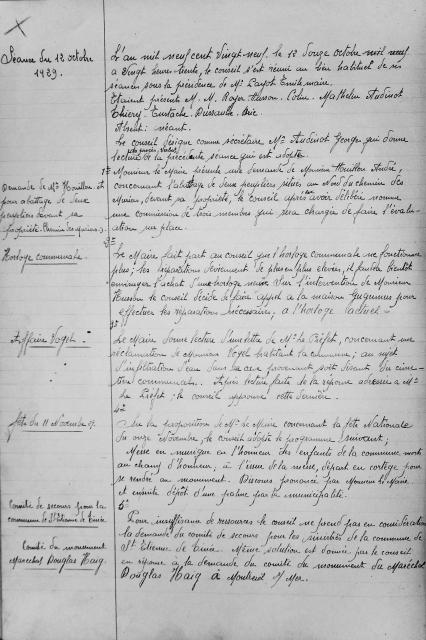 Séance du 12 octobre
1929.
L'an mil neuf cent vingt-neuf, le 12 douze octobre mil neuf
à vingt heures trente, le conseil s'est réuni au lieu habituel de ses
séances sous la présidence de Mr Payot Emile maire.
Etaient présents M. M. Roger Husson. Colin. Mathelin Audinot
Thiéry. Eustache. Dussaule.
Absent: néant.
Le conseil désigne comme secrétaire Mr Audinot Georges, qui donne
lecture de la précédente séance qui est adoptée
Demande de Mr Houillon. et
pour abattage de deux
peupliers devant sa
propriété. Chemin des
1º Monsieur le Maire présente une demande de Monsieur Houillon André,
concernant l'abattage de deux peupliers, situés au Nord du chemin des
devant sa propriété, le conseil après avoir délibéré nomme
une commission de trois membres qui sera chargée de faire l'évalu-
ation sur place.
Horloge communale.
2º
Le Maire fait part au conseil que l'horloge communale ne fonctionne
plus; les réparations deviennent de plus en plus élevées, il faudra bientôt
envisager l'achat d'une horloge neuve. Sur l'intervention de Monsieur
Husson le conseil décide de faire appel à la maison pour
effectuer les réparations nécessaires, à l'horloge actuelle
Affaire Vogel.
3º
Le Maire donne lecture d'une lettre de Mr le Préfet, concernant une
réclamation de Monsieur Vogel habitant la commune; au sujet
d'infiltration d'eau dans sa cave provenant soit disant du cime-
tière communal. Après lecture faite de la réponse adressée à Mr
le Préfet; le conseil approuve cette dernière.
fête du 11 Novembre
4º
Sur la proposition de Mr le Maire concernant la fête Nationale
du onze Novembre, le conseil adopte le programme suivant;
Messe en musique en l'honneur des enfants de la commune morts
au champ d'honneur, à l'issue de la messe, départ en cortège pour
se rendre au monument. Discours prononcé par Monsieur le Maire
et ensuite dépôt d'une palme par la municipalité.
Comité de secours pour la
commune de St Etienne de Tinée
Comité du monument
Maréchal Douglas Haig.
5º
Pour insuffisance de ressources le conseil ne prend pas en considération
la demande du comité de secours pour les sinistrés de la commune de
St Etienne de Tinée. Même solution est donnée par le conseil
en réponse à la demande du comité du monument du Maréchal
Douglas Haig à Montreuil s/ Mer.